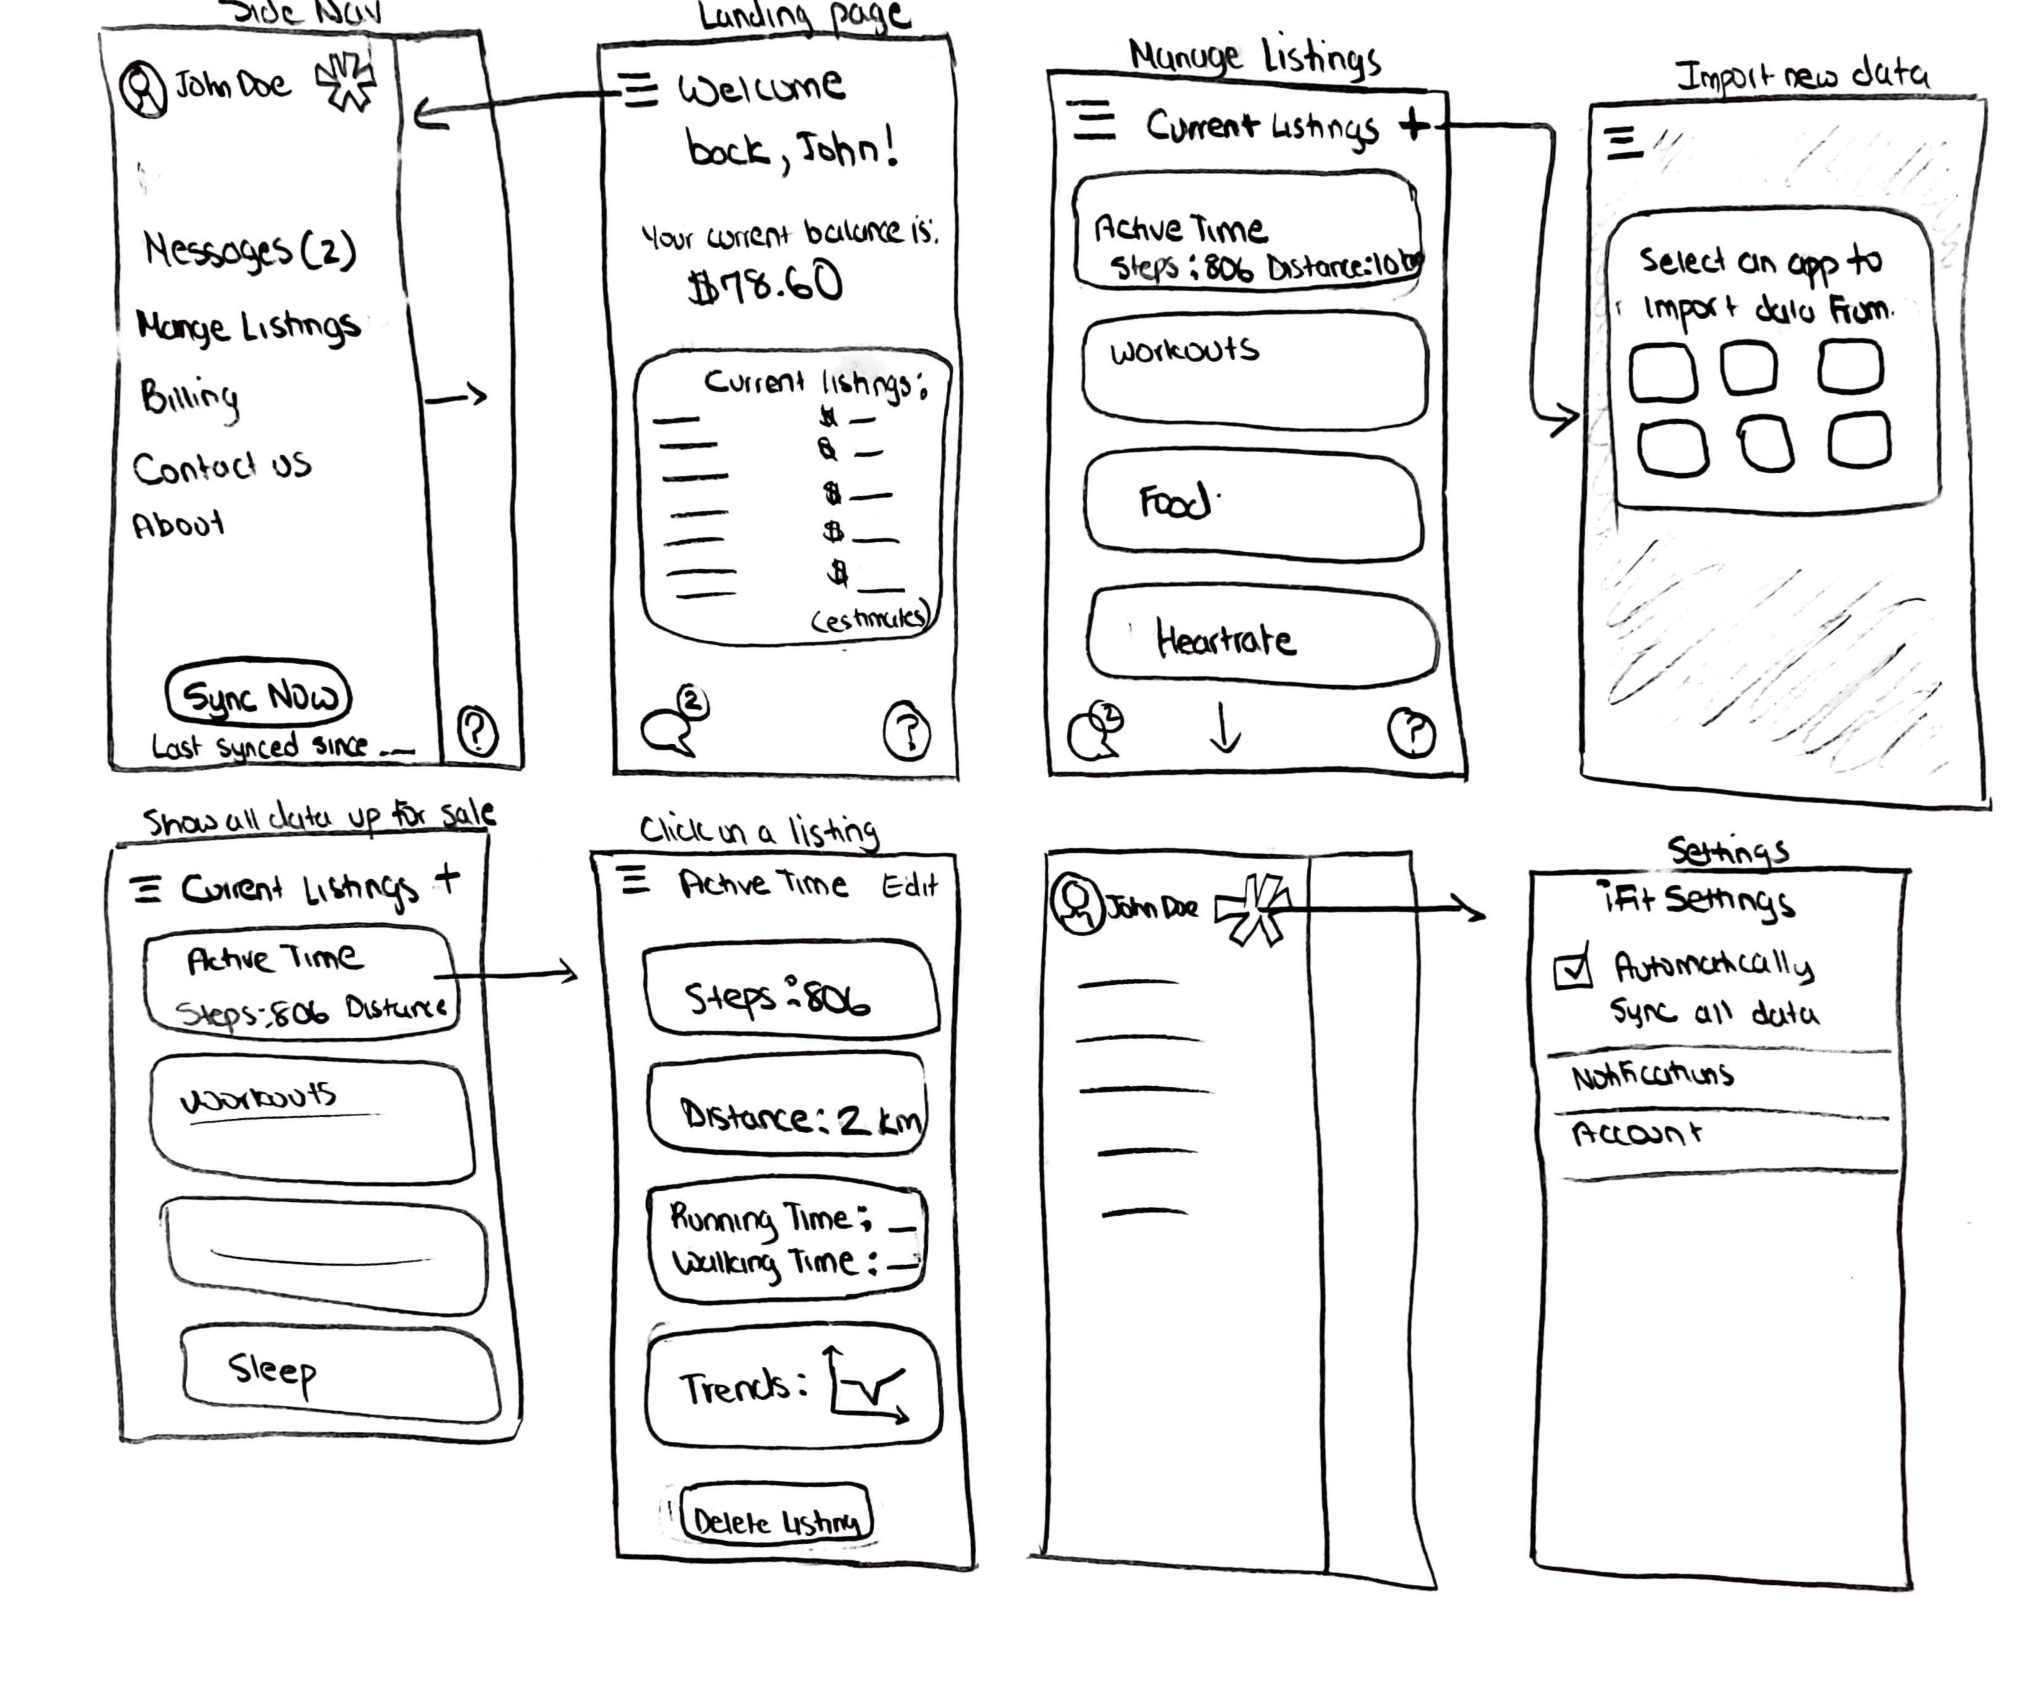 Side Nav
John Doe
Messages (2)
Mange Listings
Billing
Contact us
About
Sync Now
Last synced since __
?
Landing page
Welcome
back, John!
Your current balance is:
$78.60
Current listings:
$ __
$ __
$ __
$ __
$ __
(estimates)
2
?
Manage Listings
Current Listings +
Active Time
Steps: 806 Distance:
Workouts
Food
Heartrate
2
?
Import new data
Select an app to
Import data From.
Show all data up for sale
Current Listings +
Active Time
Steps: 806 Distance
Workouts
Sleep
Click on a listing
Active Time Edit
Steps: 806
Distance: 2 km
Running Time: __
Walking Time: __
Trends:
Delete Listing
John Doe
Settings
iFit Settings
Automatically
Sync all data
Notifications
Account